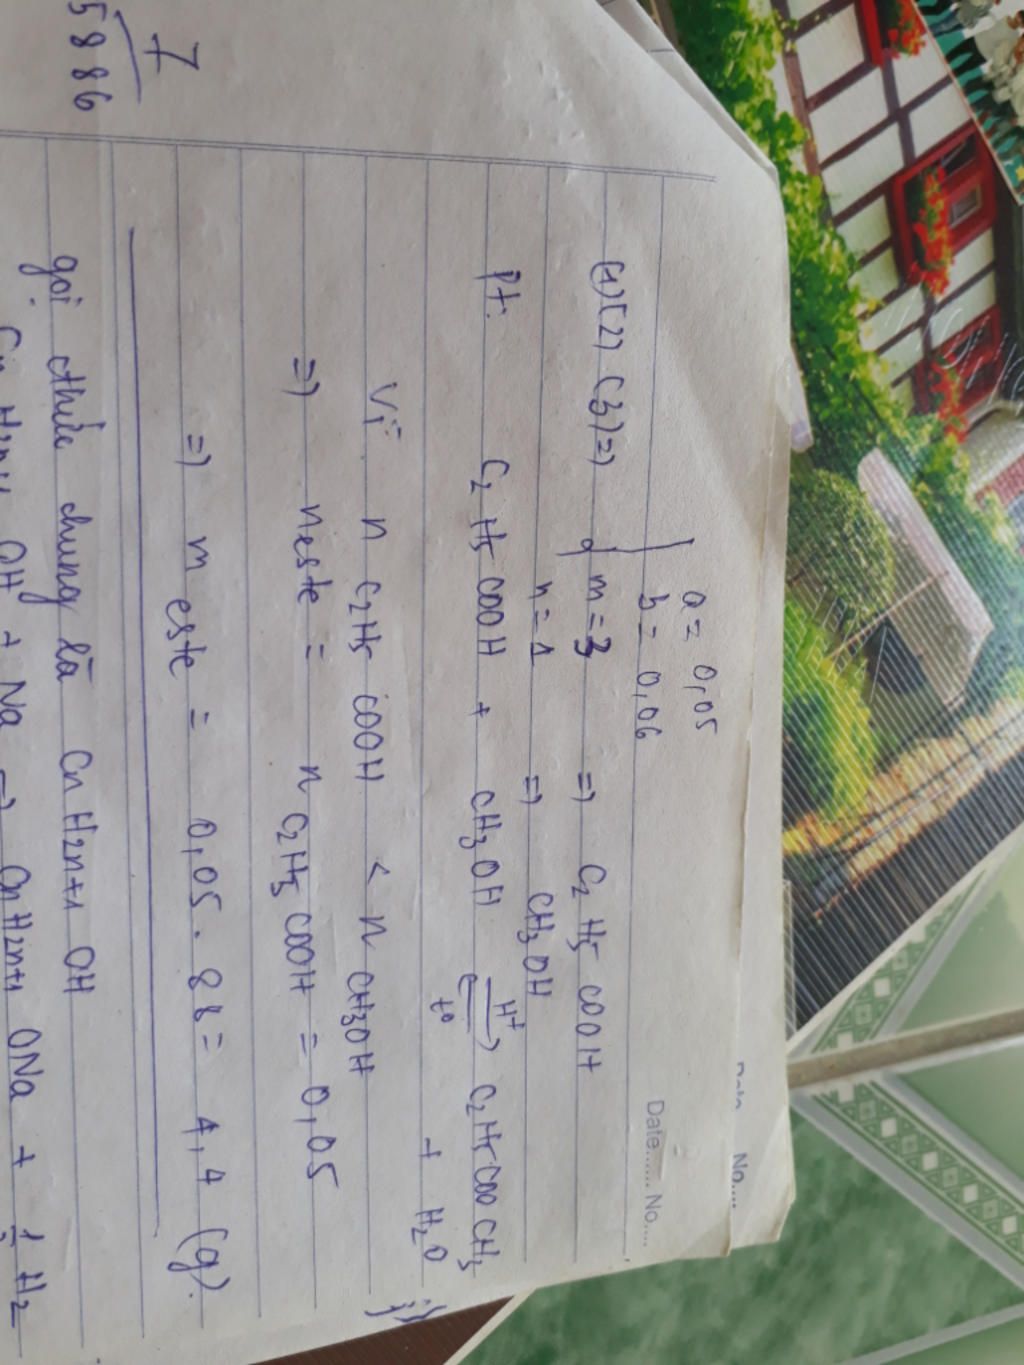 No....
Date...... No......
a = 0,05
b = 0,06
(1)(2)(3) => m = 3 => C2H5COOH
n = 1 => CH3OH
Pt: C2H5COOH + CH3OH H+ t° C2H5COOCH3
+ H2O
Vì n C2H5COOH < n CH3OH
=> neste = n C2H5COOH = 0,05
=> m este = 0,05 . 88 = 4,4 (g).
gọi cthức chung là CnH2n+1 OH
OH + Na => CnH2n+1 ONa + 1/2 H2
7
5886